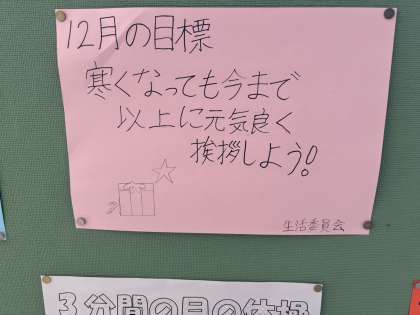 12月の目標
寒くなっても今まで
以上に元気良く
挨拶しよう!
生活委員会
3分間の目の体操